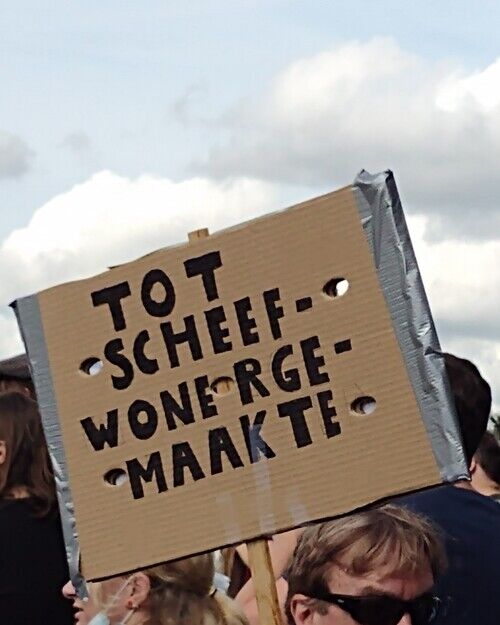 TOT
SCHEEF-
WONERGE-
MAAKTE